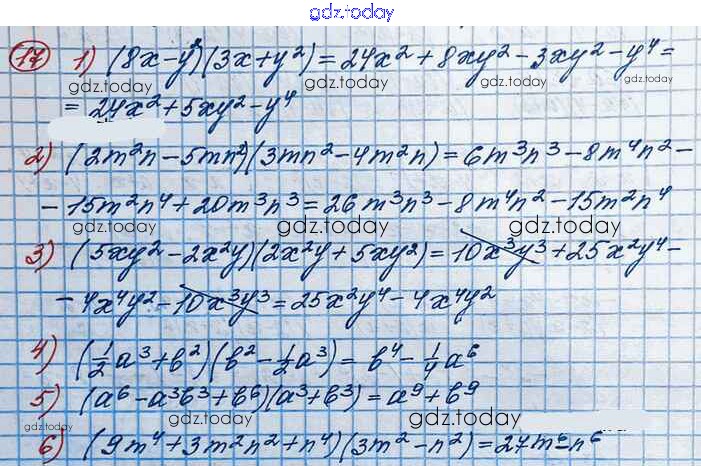 gdz.today
17 1) (8x-y²)(3x+y²)=24x²+8xy²-3xy²-y⁴=
gdz.today gdz.today gdz.today
=24x²+5xy²-y⁴
2) (2m²n-5mn²)(3mn²-4m²n)=6m³n³-8m⁴n²-
-15m²n⁴+20m³n³=26m³n³-8m⁴n²-15m²n⁴
gdz.today gdz.today gdz.today
3) (5xy²-2x²y)(2x²y+5xy²)=10x³y³+25x²y⁴-
-4x⁴y²-10x³y³=25x²y⁴-4x⁴y²
4) (½a³+b²)(b²-½a³)=b⁴-¼a⁶
5) (a⁶-a³b³+b⁶)(a³+b³)=a⁹+b⁹
gdz.today gdz.today gdz.today
6) (9m⁴+3m²n²+n⁴)(3m²-n²)=27m⁶-n⁶